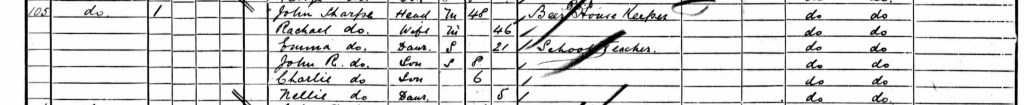 105 do. 1 John Sharpe Head M 48 Beer House Keeper do do
Rachael do. Wife M 46 do do
Emma do. Daur. S 21 School Teacher. do do.
John R. do. Son S 8 do do
Charlie do Son 6 do do
Nellie do Daur. 5 do do.